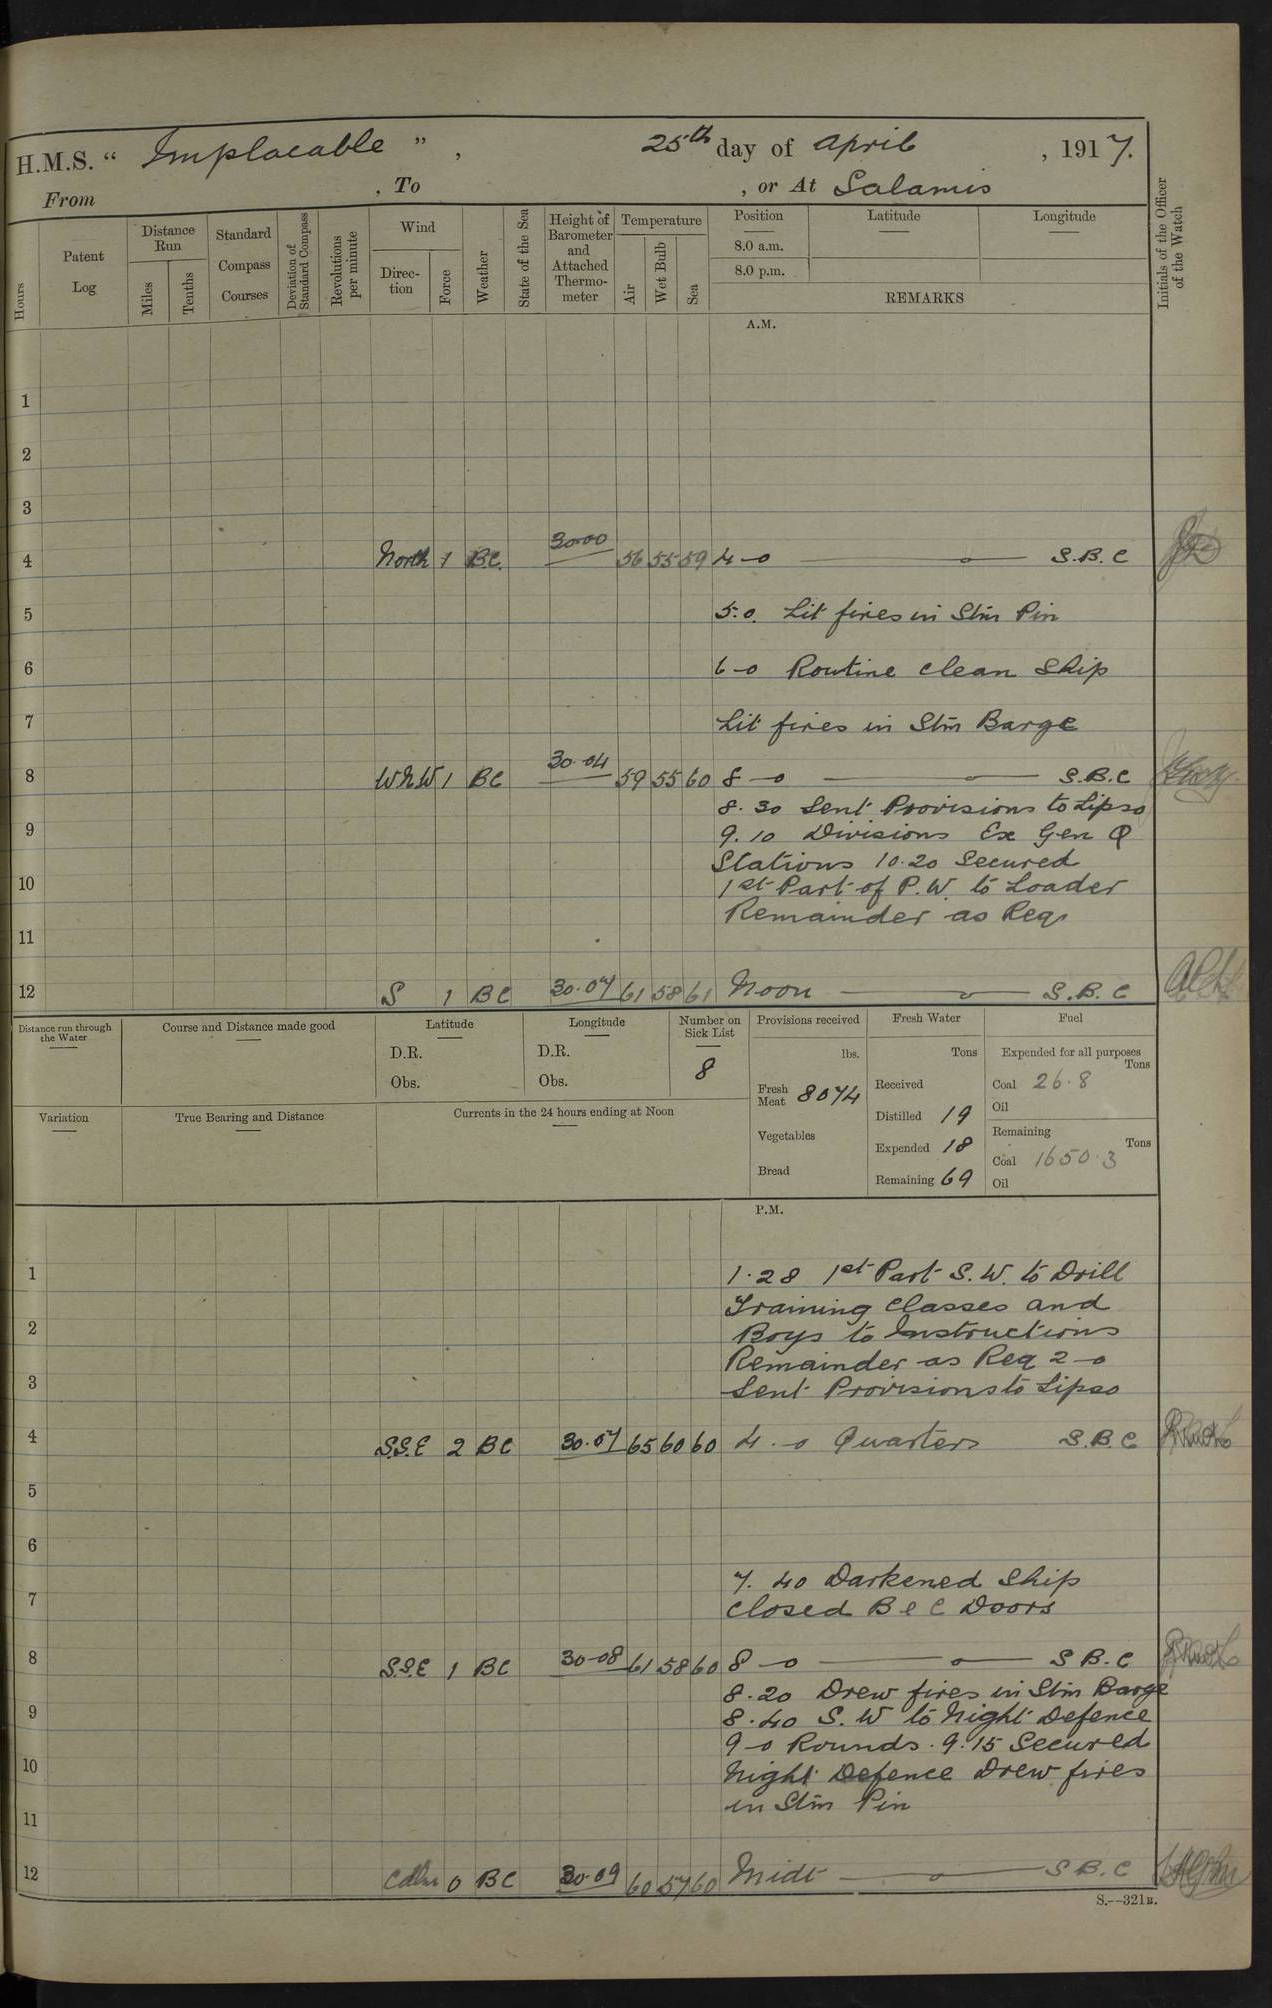 H.M.S. “ Implacable ” , 25th day of April , 1917.
From , To , or At Salamis
Hours
Patent Log
Distance Run
Miles
Tenths
Standard Compass Courses
Deviation of Standard Compass
Revolutions per minute
Wind
Direc-tion
Force
Weather
State of the Sea
Height of Barometer and Attached Thermo-meter
Temperature
Air
Wet Bulb
Sea
Position
Latitude
Longitude
8.0 a.m.
8.0 p.m.
REMARKS
Initials of the Officer of the Watch
A.M.
1
2
3
4 North 1 B.C. 30.00 56 55 59 4-0 S.B.C
5 5.0. Lit fires in Stm Pin
6 6-0 Routine Clean Ship
7 Lit fires in Stm Barge
8 WNW 1 BC 30.04 59 55 60 8-0 S.B.C
8.30 Sent Provisions to Lipso
9 9.10 Divisions Ex Gen Q
Stations 10.20 Secured
10 1st Part of P.W. to Loader
Remainder as Req
11
12 S 1 BC 30.07 61 58 61 Noon S.B.C
Distance run through the Water
Course and Distance made good
Latitude
D.R.
Obs.
Longitude
D.R.
Obs.
Number on Sick List
8
Provisions received
lbs.
Fresh Meat 8074
Vegetables
Bread
Fresh Water
Tons
Received
Distilled 19
Expended 18
Remaining 69
Fuel
Expended for all purposes
Tons
Coal 26.8
Oil
Remaining
Tons
Coal 1650.3
Oil
Variation
True Bearing and Distance
Currents in the 24 hours ending at Noon
P.M.
1 1.28 1st Part S.W. to Drill
Training Classes and
2 Boys to Instructions
Remainder as Req 2-0
3 Sent Provisions to Lipso
4 S.S.E 2 BC 30.07 65 60 60 4.-0 Quarters S.B.C
5
6
7.40 Darkened Ship
7 Closed B & C Doors
8 S.S.E 1 BC 30-08 61 58 60 8-0 S B.C
8.20 Drew fires in Stm Barge
9 8.40 S.W to Night Defence
9-0 Rounds. 9.15 Secured
10 Night Defence Drew fires
in Stm Pin
11
12 Calm 0 BC 30.09 60 57 60 Midt S B.C
S.—321B.